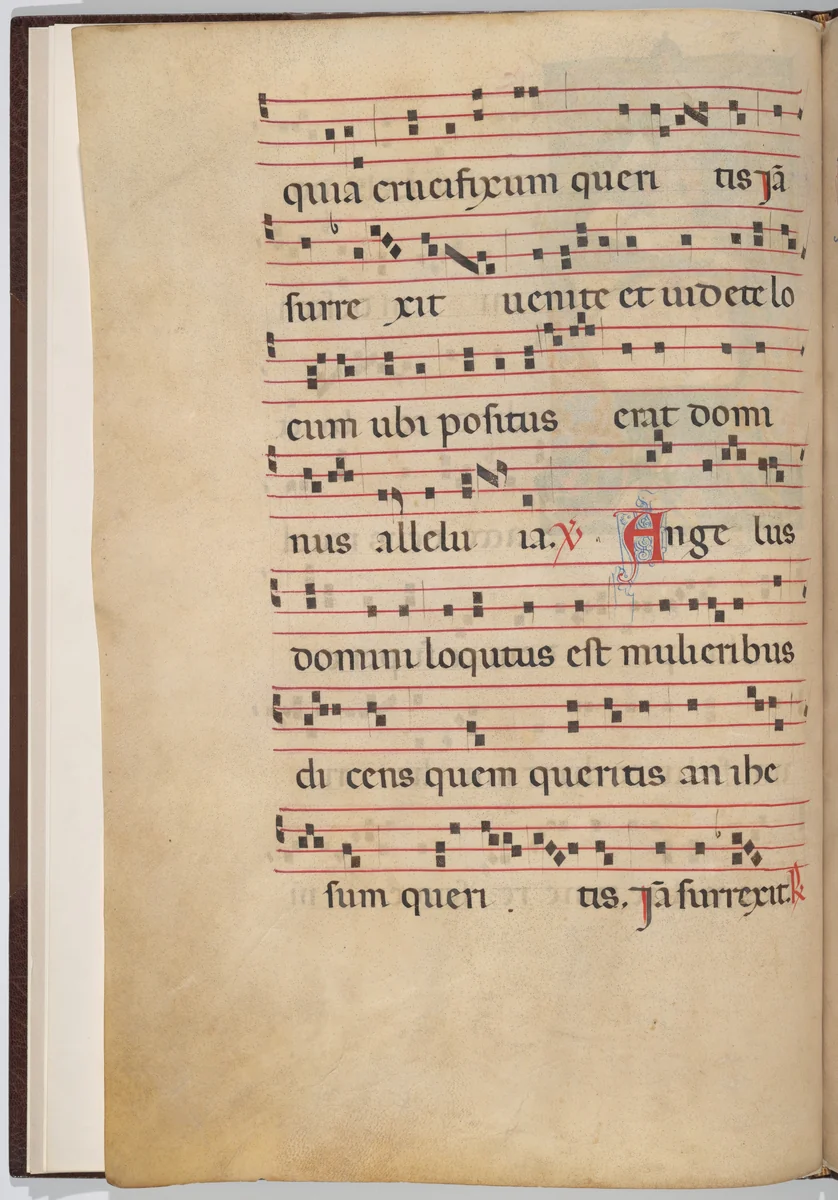 quia crucifixum queri tis Jā
surre xit uenite et uidete lo
cum ubi positus erat domi
nus allelu ia. ℣ Ange lus
domini loqutus est mulieribus
di cens quem queritis an ihe
sum queri tis. Jā surrexit. ℟